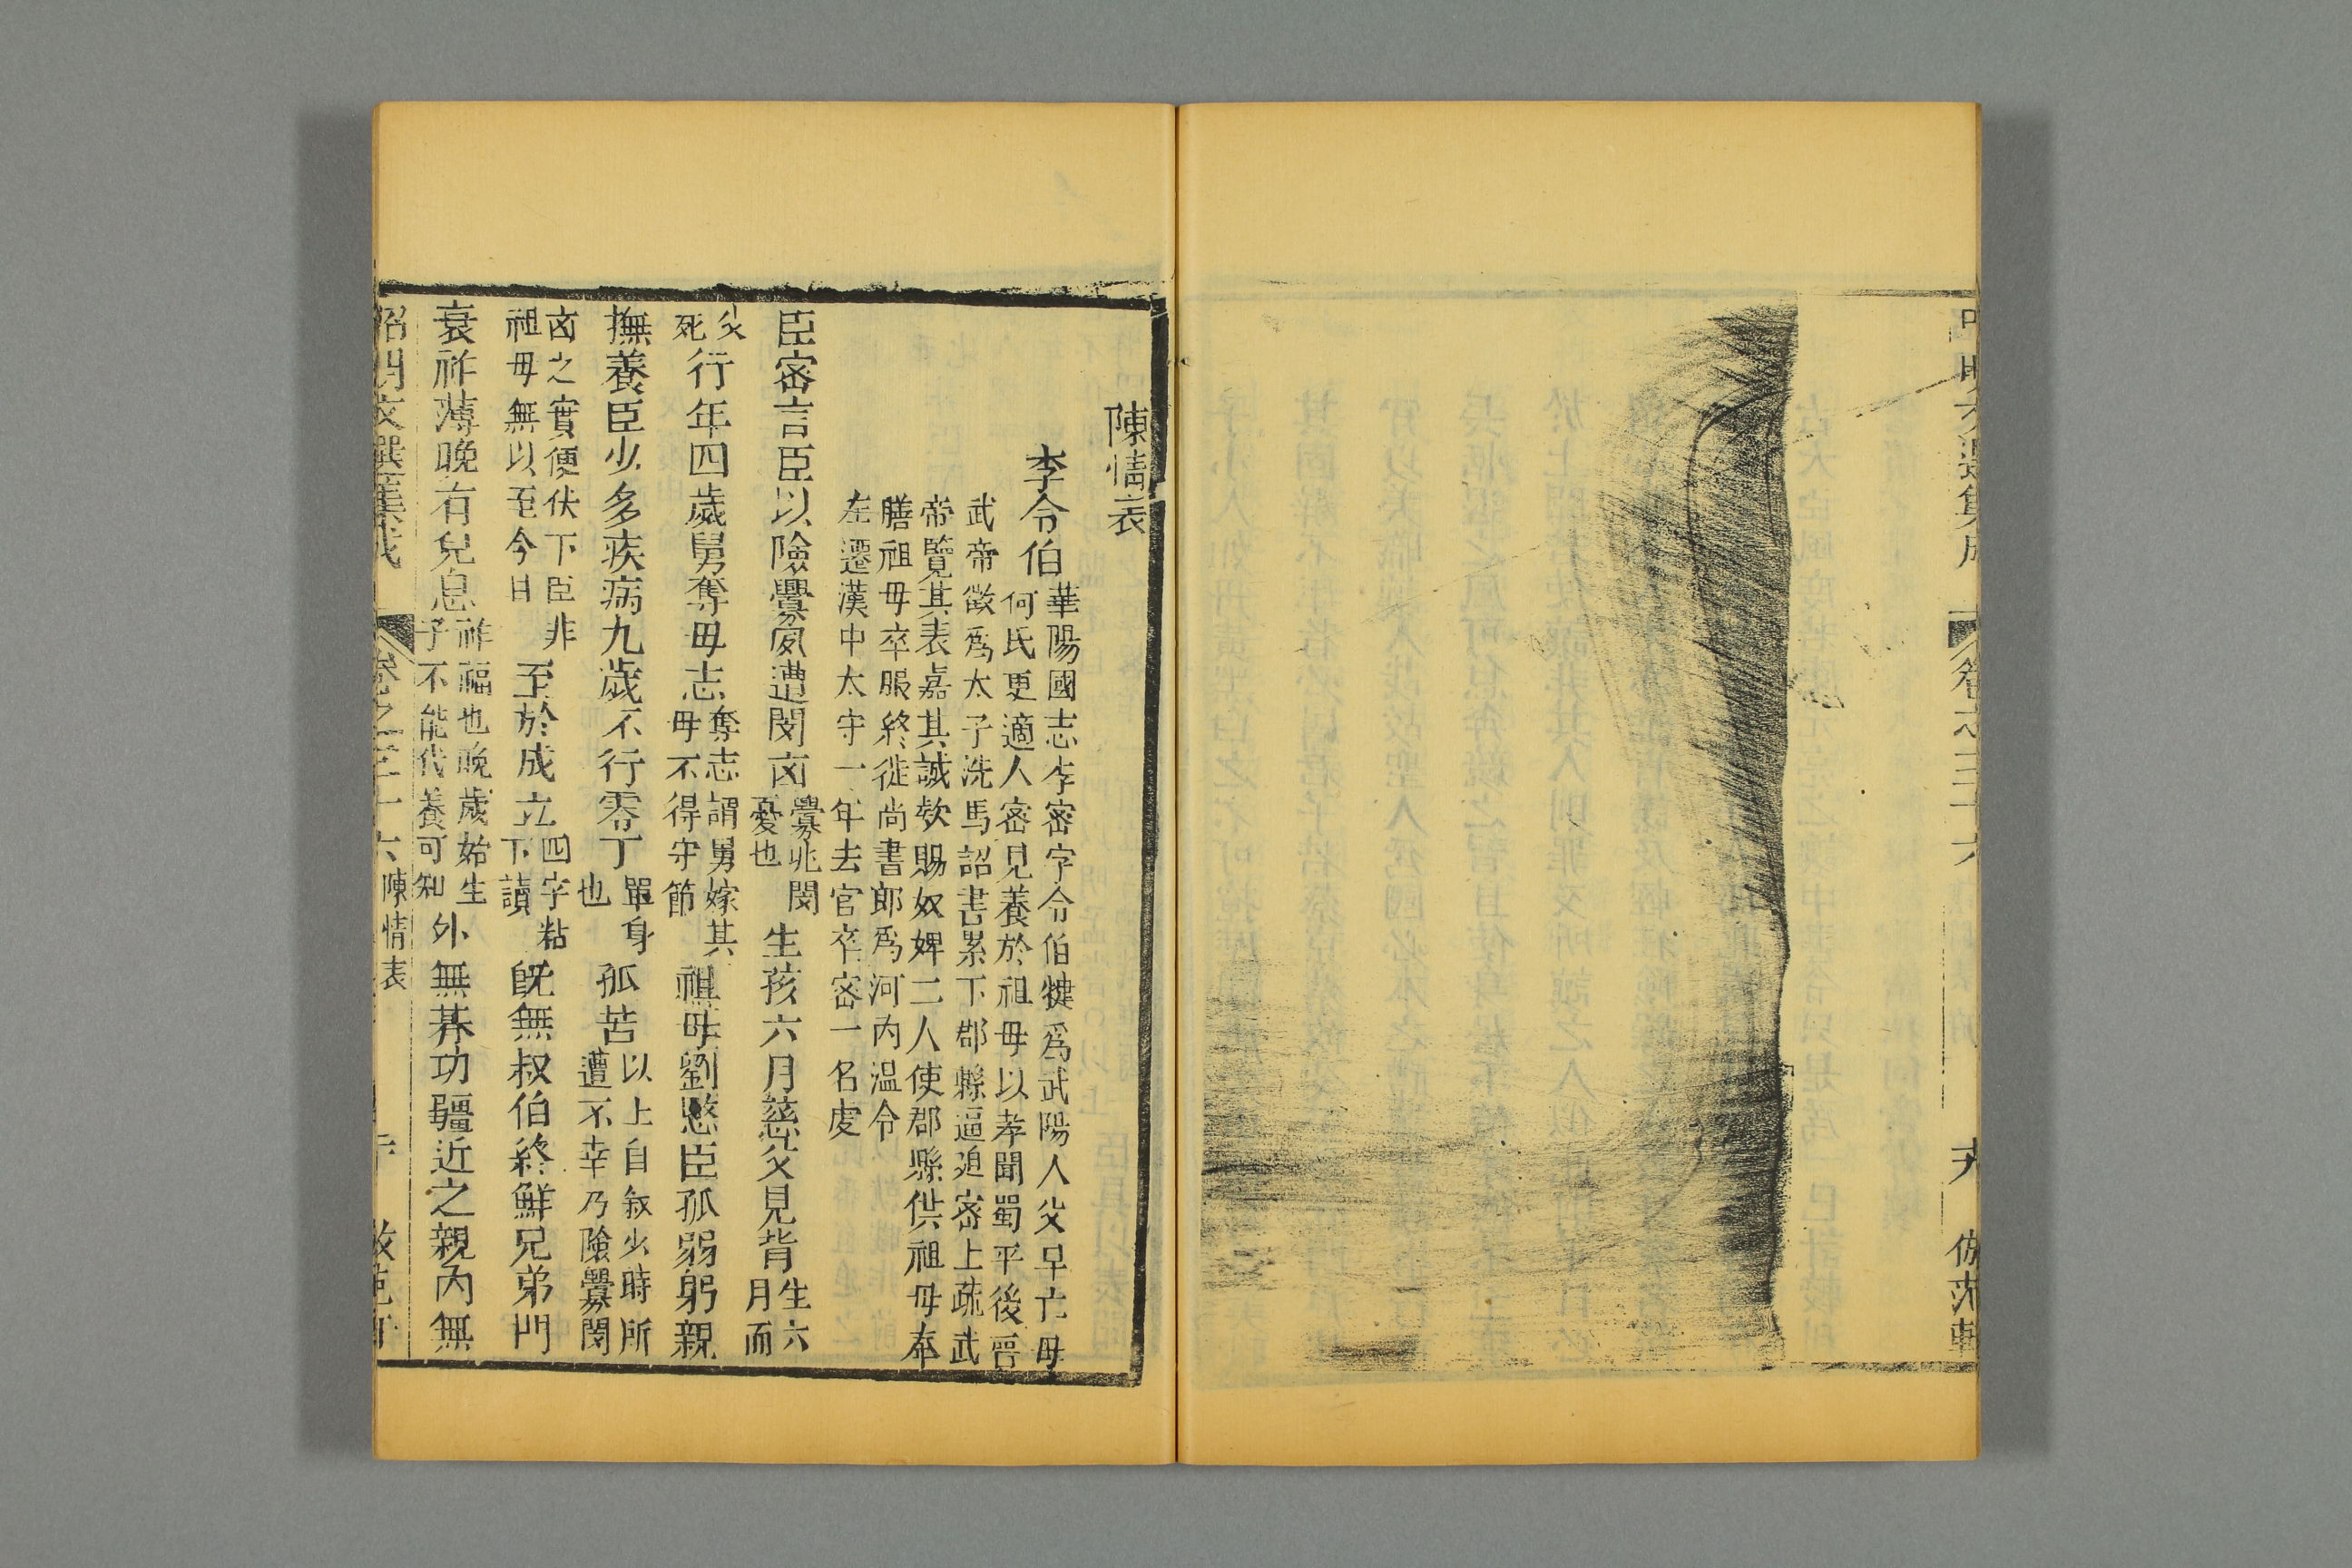 卷之三十六
陳情表
李令伯
華陽國志李密字令伯犍爲武陽人父早亡母
何氏更適人密見養於祖母以孝聞蜀平後晉
武帝徵爲太子洗馬詔書累下郡縣逼迫密上疏武
帝覽其表嘉其誠欸賜奴婢二人使郡縣供祖母奉
膳祖母卒服終徙尚書郎爲河内温令
左遷漢中太守一年去官卒密一名虔
臣密言臣以險釁夙遭閔凶
釁兆閔
憂也
生孩六月慈父見背
生六
月而
父
死
行年四歲舅奪母志
奪志謂舅嫁其
母不得守節
祖母劉愍臣孤弱躬親
撫養臣少多疾病九歲不行零丁
單身
也
孤苦
以上自敍少時所
遭不幸乃險釁閔
凶之實便伏下臣非
祖母無以至今日
至於成立
四字粘
下讀
旣無叔伯終鮮兄弟門
衰祚薄晚有兒息
祚福也晚歲始生
子不能代養可知
外無朞功疆近之親內無
昭明文選集成
卷之三十六
陳情表